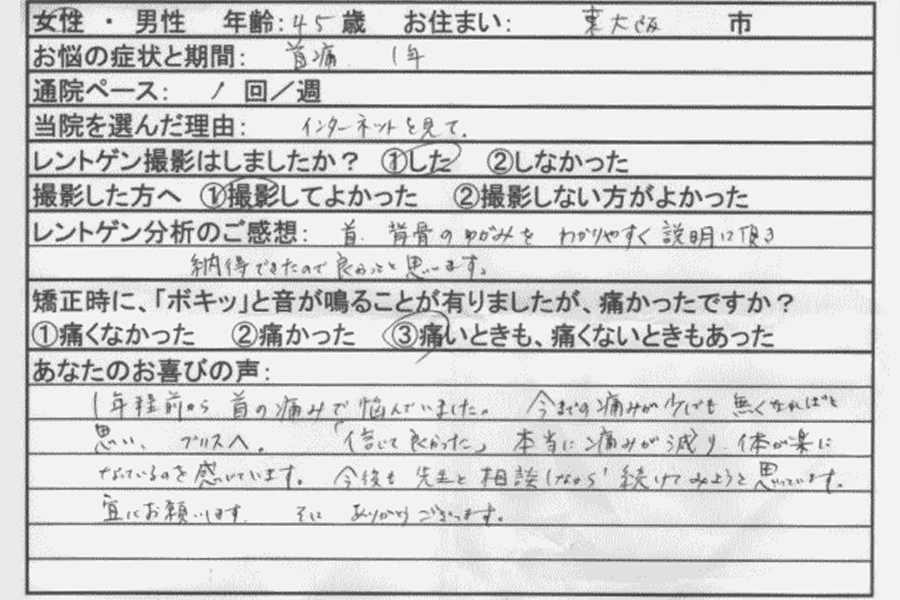 女性 ・ 男性　年齢:45歳　お住まい:　東大阪　市
お悩の症状と期間:　首痛　1年
通院ペース:　1 回／週
当院を選んだ理由:　インターネットを見て.
レントゲン撮影はしましたか？　①した　②しなかった
撮影した方へ　①撮影してよかった　②撮影しない方がよかった
レントゲン分析のご感想:　首、背骨のゆがみを わかりやすく説明に頂き
納得できたので良かったと思います。
矯正時に、「ボキッ」と音が鳴ることが有りましたが、痛かったですか？
①痛くなかった　②痛かった　③痛いときも、痛くないときもあった
あなたのお喜びの声:
1年程前から 首の痛みで悩んでいました。 今までの痛みが少しでも 無くなればと
思い、 プリスへ。 「信じて良かった」 本当に痛みが減り 体が楽に
なっているのを感じています。 今後も 先生と相談しながら 続けてみようと思っています。
宜しくお願いします. ありがとうございます。